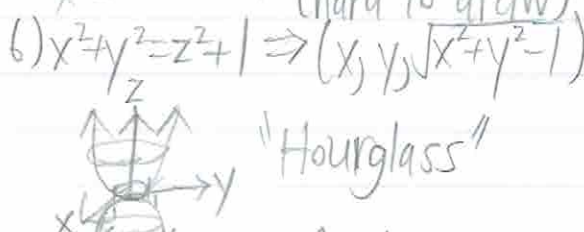 (hard to draw)
6) x²+y²=z²+1 ⇒ (x, y, √x²+y²-1)
z
"Hourglass"
y
x